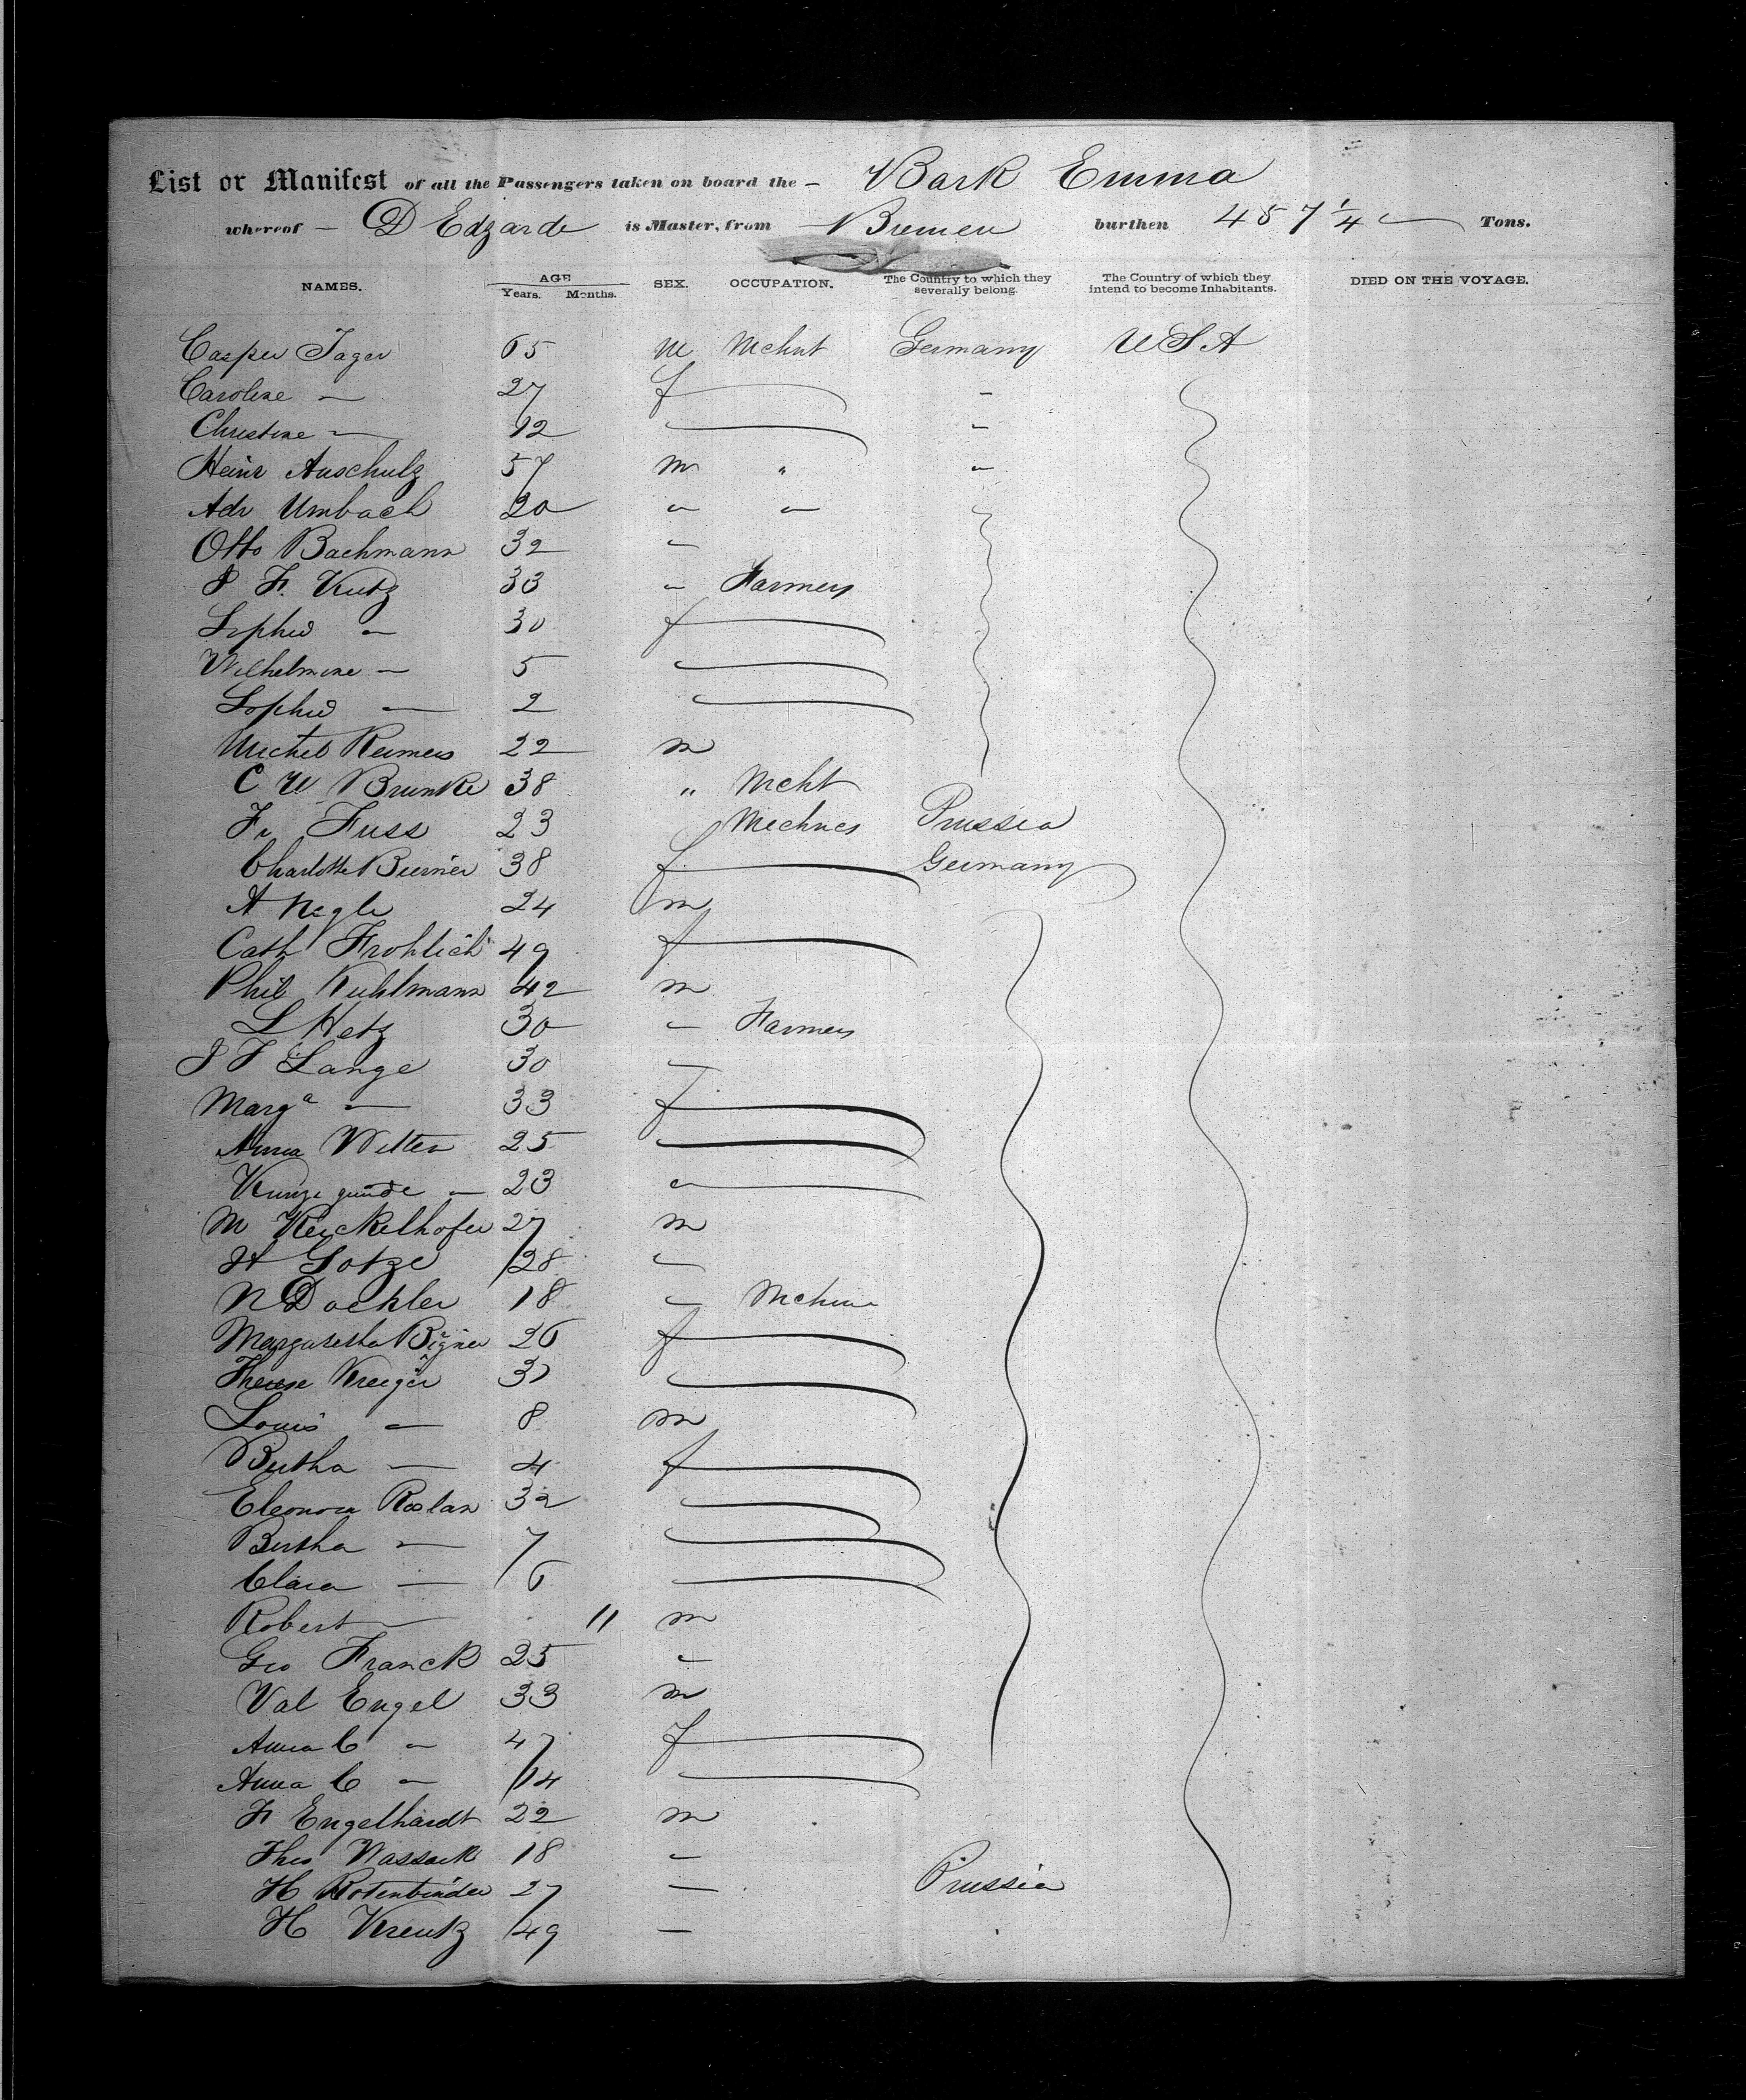 List or Manifest of all the Passengers taken on board the - Bark Emma
whereof - D Edzarde is Master, from Bremen burthen 457 1/4 Tons.
NAMES. AGE Years. Months. SEX. OCCUPATION. The Country to which they severally belong. The Country of which they intend to become Inhabitants. DIED ON THE VOYAGE.
Casper Jager 65 m Mchnt Germany USA
Caroline — 27 f -
Christine — 12 -
Heinr Auschulz 57 m " "
Adr Umbach 20 " "
Otto Bachmann 32 "
J F. Kutz 33 " Farmers
Sophie — 30 f
Wilhelmine — 5
Sophie — 2
Michel Reimers 22 m
C W Brunke 38 " Mcht
Fr Fuss 23 Mechncs Prussia
Charlotte 38 f Germany
A Nagle 24 m
Cath Frohlich 49 f
Phil Kuhlmann 42 m
L Hetz 30 " Farmers
J F Lange 30 "
Marga — 33 f
Anna Witten 25
Kunze gunde — 23 "
M 27 m
H Gotze 28 "
N 18 "
Margaretha 26 f
Therese Kreiger
Louis — 8 m
Bertha — 4 f
Eleonora 32
Bertha — 7
Clara — 6
Robert — 11 m
Geo Franck 25 "
Val Engel 33 m
Anna C — 47 f
Anna C — 14
F Engelhardt 22 m
Theo Wassack 18 "
H Rotenbinder 27 — Prussia
H Kreutz 49 —